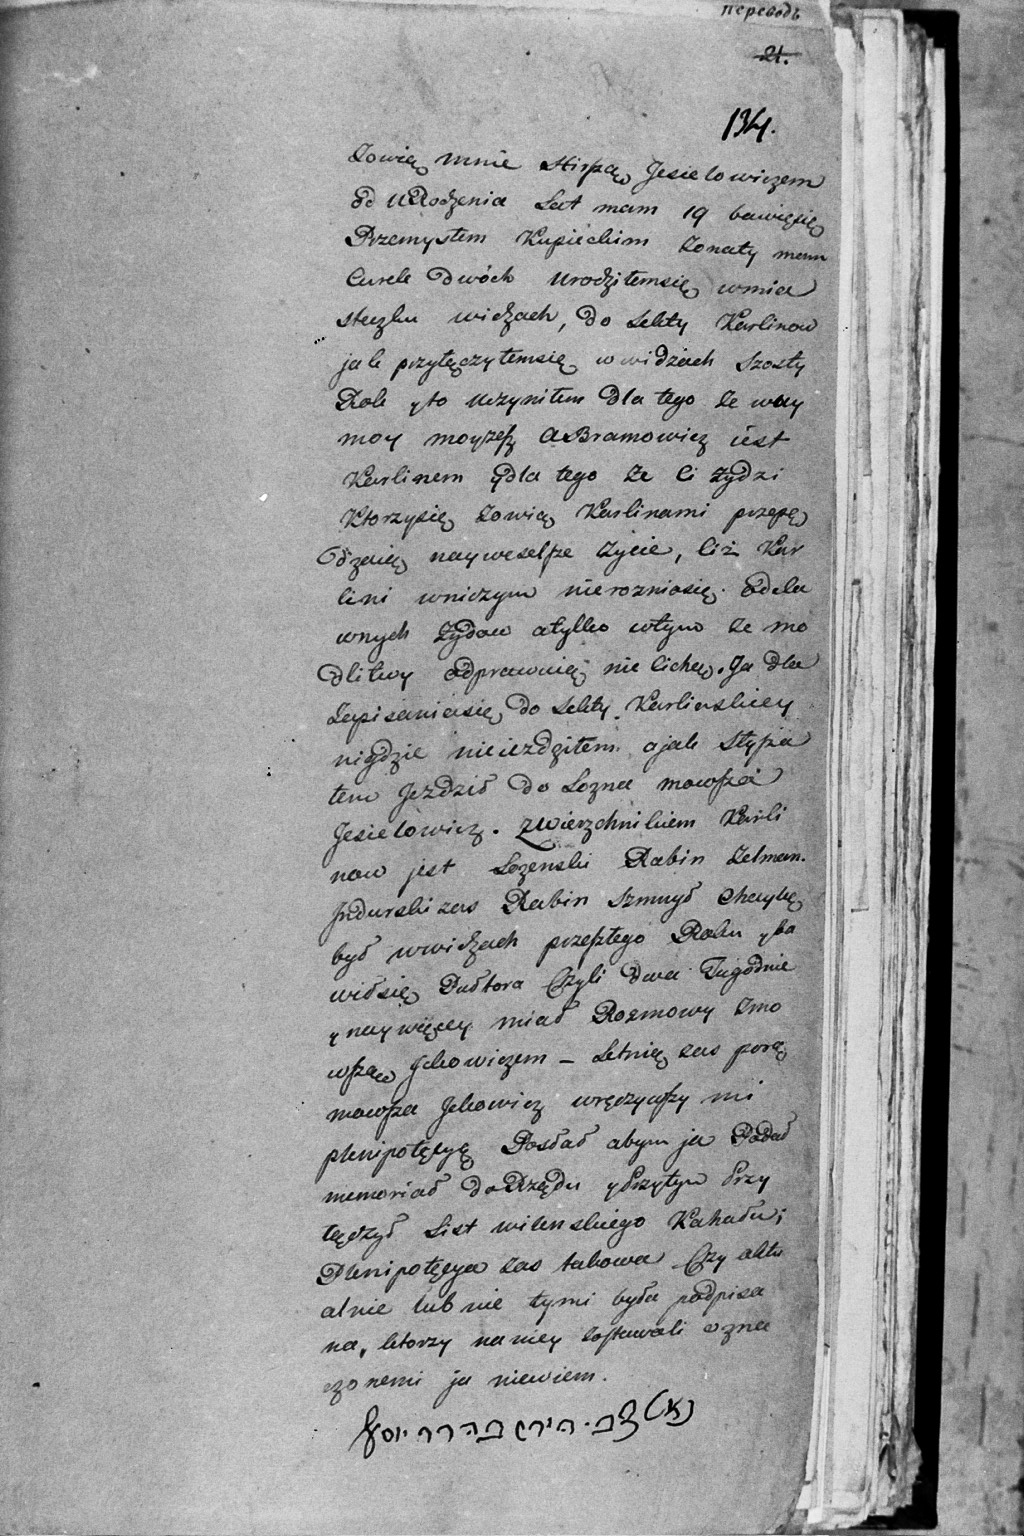 переводъ
21.
134.
Zowią mnie Hirszą Jesielowiczem
od Urodzenia Lat mam 19 bawięsię
Przemysłem Kupieckim Zonaty mam
Curek Dwóch urodziłemsię wmia
steczku widzach, do Sekty Karlinow
jak przyłęczyłemsię w widzach Szosty
Rok yto uczyniłem dla tego że
moy moyzesz Abramowicz iest
Karlinem ydla tego że Ci żydzi
Ktorzysię zowią Karlinami przepę
dzaią nayweselsze życie, liż Kar
lini wniczym nierozniąsię odda
wnych żydow atylko wtym że mo
dlitwy odprawuią nie cicho. Ja dla
Zapisaniasię do Sekty Karlinskiey
nigdzie nieiezdziłem ajak słysza
łem Jezdził do Lozna mowsza
Jesielowicz. zwierzchnikiem Karli
now jest Lozenski Rabin Zelman.
Indurski zas Rabin Szmuył Chaykę
był wwidzach przeszłego Roku yba
wiłsię Pułtora Czyli dwa Tygodnie
ynaywięcey miał Rozmowy Zmo
wszą Ickowiczem – Letnią zas porą
mowsza Ickowicz wręczywszy mi
plenipotęcyę Posłał abym ja Podał
memoriał do Rządu yPrzytym Przy
łęczył List wilenskiego Kahału;
Plenipotęcya zas takowa Czy aktu
alnie lub nie tymi była podpisa
na, ktorzy naniey zostawali ozna
czonemi ja niewiem.
צבי הירש בהרר יוסף